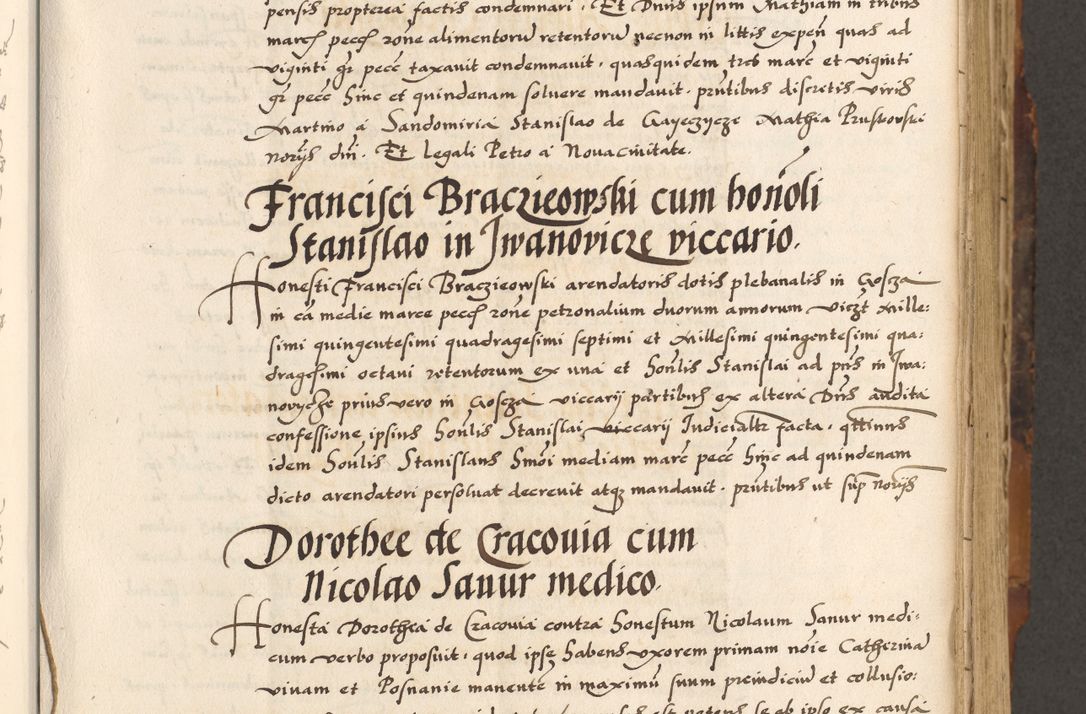 pensis propterea factis condemnari. Et Dnus ipsum Mathiam in tribus
march pecch rone alimentoru retentoru necnon in littis expen quas ad
viginti gr pecc taxavit condemnavit. quasquidem tres marc et viginti
gr pecc hinc et quindenam solvere mandavit. pntibus discretis viris
Martino a Sandomiria Stanislao de Gayeczycze Mathia Pruskowski
norijs dni. Et legali Petro a Novacivitate.
Francisci Braczieowski cum honoli
Stanislao in Jwanovicze viccario.
Honesti Francisci Braczieowski arendatoris dotis plebanalis in Goscza
in ca medie marce pecch rone petronalium duorum annorum viczt Mille-
simi quingentesimi quadragesimi septimi et Millesimi quingentesimi qua-
dragesimi octavi retentorum ex una et honlis Stanislai ad pns in Jwa-
novycze prius vero in Goscza viccarij partibus ex altera Dns audita
confessione ipsius honlis Stanislai viccarij Iudicialtr facta. qttinus
idem honlis Stanislaus hmoi mediam marc pecc hinc ad quindenam
dicto arendatori persolvat decrevit atq mandavit. pntibus ut sup norijs
Dorothee de Cracovia cum
Nicolao Sanur medico.
Honesta Dorothea de Cracovia contra honestum Nicolaum Sanur medi-
cum verbo proposuit. quod ipse habens uxorem primam noie Catherina
vivam et Posnanie manente in maximu suum preiudiciu et collusio-